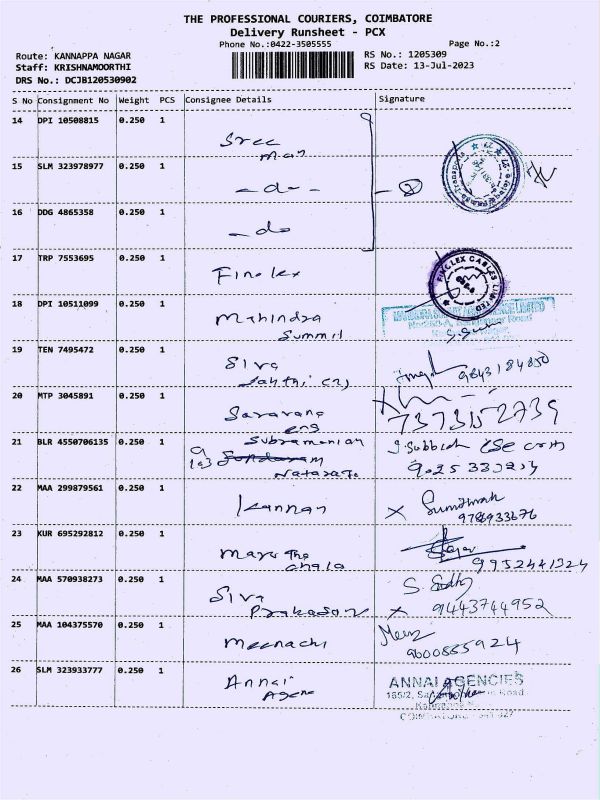 THE PROFESSIONAL COURIERS, COIMBATORE
Delivery Runsheet - PCX
Phone No.:0422-3505555 Page No.:2
Route: KANNAPPA NAGAR RS No.: 1205309
Staff: KRISHNAMOORTHI RS Date: 13-Jul-2023
DRS No.: DCJB120530902
S No Consignment No Weight PCS Consignee Details Signature
14 DPI 10508815 0.250 1
Sree
man
15 SLM 323978977 0.250 1
- do -
16 DDG 4865358 0.250 1
- do
17 TRP 7553695 0.250 1
Finolex
FINOLEX CABLES LIMITED
18 DPI 10511099 0.250 1
Mahindra
Summit
19 TEN 7495472 0.250 1
Siva
9843184850
20 MTP 3045891 0.250 1
Saravana
eng
7373152739
21 BLR 4550706135 0.250 1
Subramanian
Nataraja
22 MAA 299879561 0.250 1
Kannan
23 KUR 695292812 0.250 1
9952441324
24 MAA 570938273 0.250 1
Siva
Prakasam
9443744952
25 MAA 104375570 0.250 1
Meenachi
9600855924
26 SLM 323933777 0.250 1
Annai
Agenc
ANNAI AGENCIES